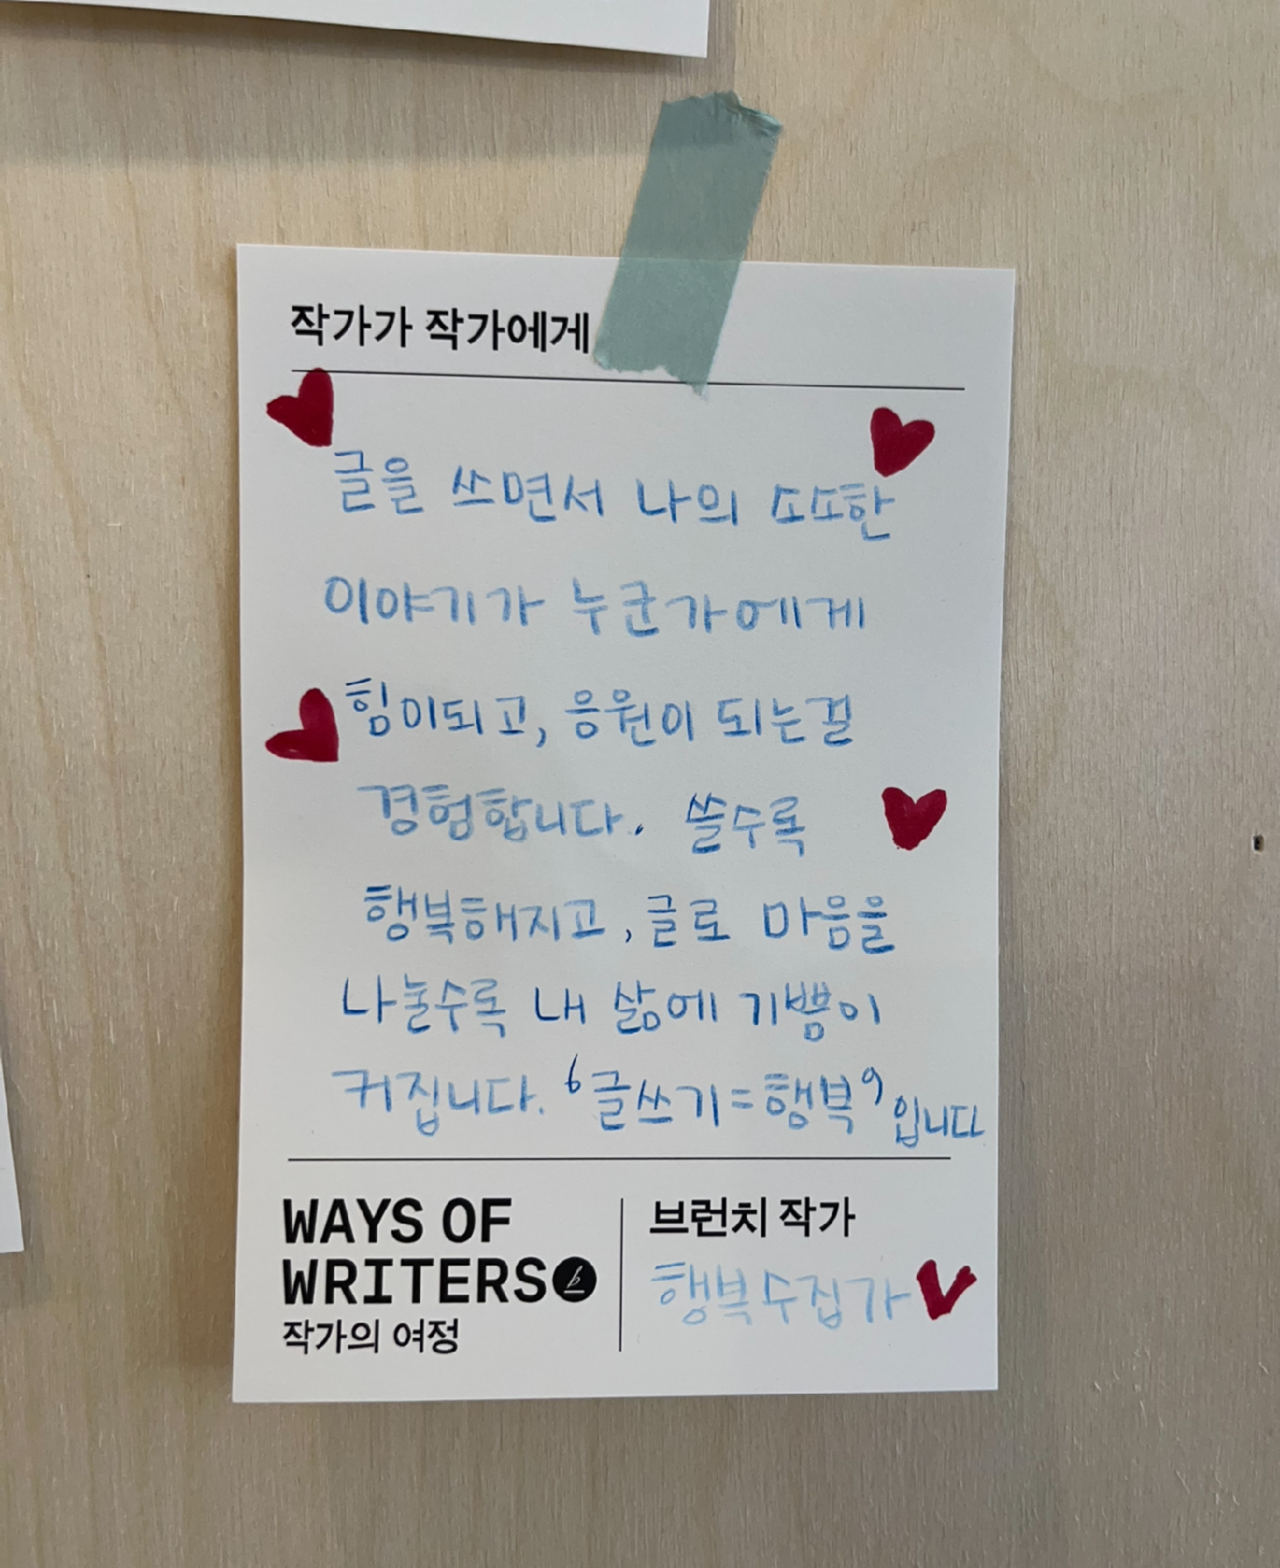 작가가 작가에게
글을 쓰면서 나의 소또한
이야기가 누군가에게
힘이되고, 응원이 되는걸
경험합니다. 쓸수록
행복해지고, 글로 마음을
나눌수록 내 삶에 기쁨이
커집니다. '글쓰기=행복' 입니다
WAYS OF
WRITERS
작가의 여정
브런치 작가
행복수집가